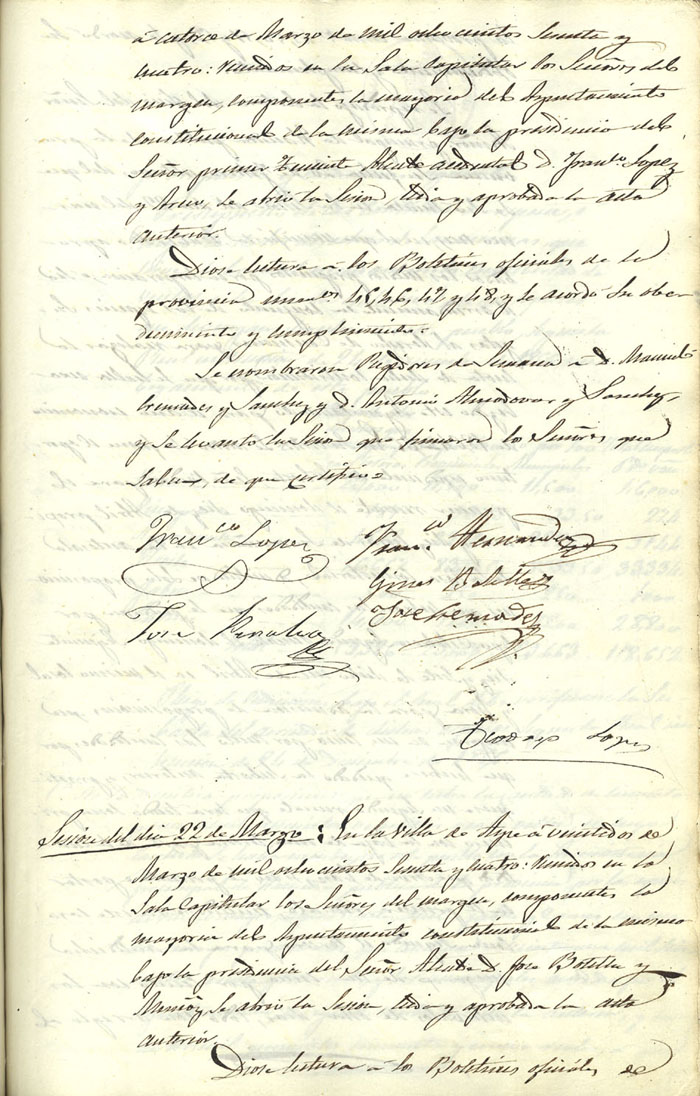 á catorce de Marzo de mil ochocientos sesenta y
cuatro: reunidos en la Sala Capitular los Señores del
margen, componentes la mayoria del Ayuntamiento
constitucional de la misma bajo la presidencia del
Señor primer Teniente Alcalde accidental D. Franco. Lopez
y se abrió la Sesion, leida y aprobada la acta
anterior.
Diose lectura á los Boletines oficiales de la
provincia numeros 45, 46, 47 y 48, y se acordó su obe-
decimiento y cumplimiento.
Se nombraron Regidores de Semana á D. Manuel
Cremades y Sanchez y D. Antonio Almodovar y Sanchez,
y se levantó la Sesion que firmaron los Señores que
saben, de que certifico=
Franco. Lopez
Franco. Hernandez
Gines Botella
Jose Cremades
Jose Penalva
Lopez
Sesión del dia 22 de Marzo: En la Villa de Aspe á veintidos de
Marzo de mil ochocientos sesenta y cuatro: reunidos en la
Sala Capitular los Señores del margen, componentes la
mayoria del Ayuntamiento constitucional de la misma
bajo la presidencia del Señor Alcalde D. Jose Botella y
Muñoz, se abrió la Sesion, leida y aprobada la acta
anterior.
Diose lectura á los Boletines oficiales de